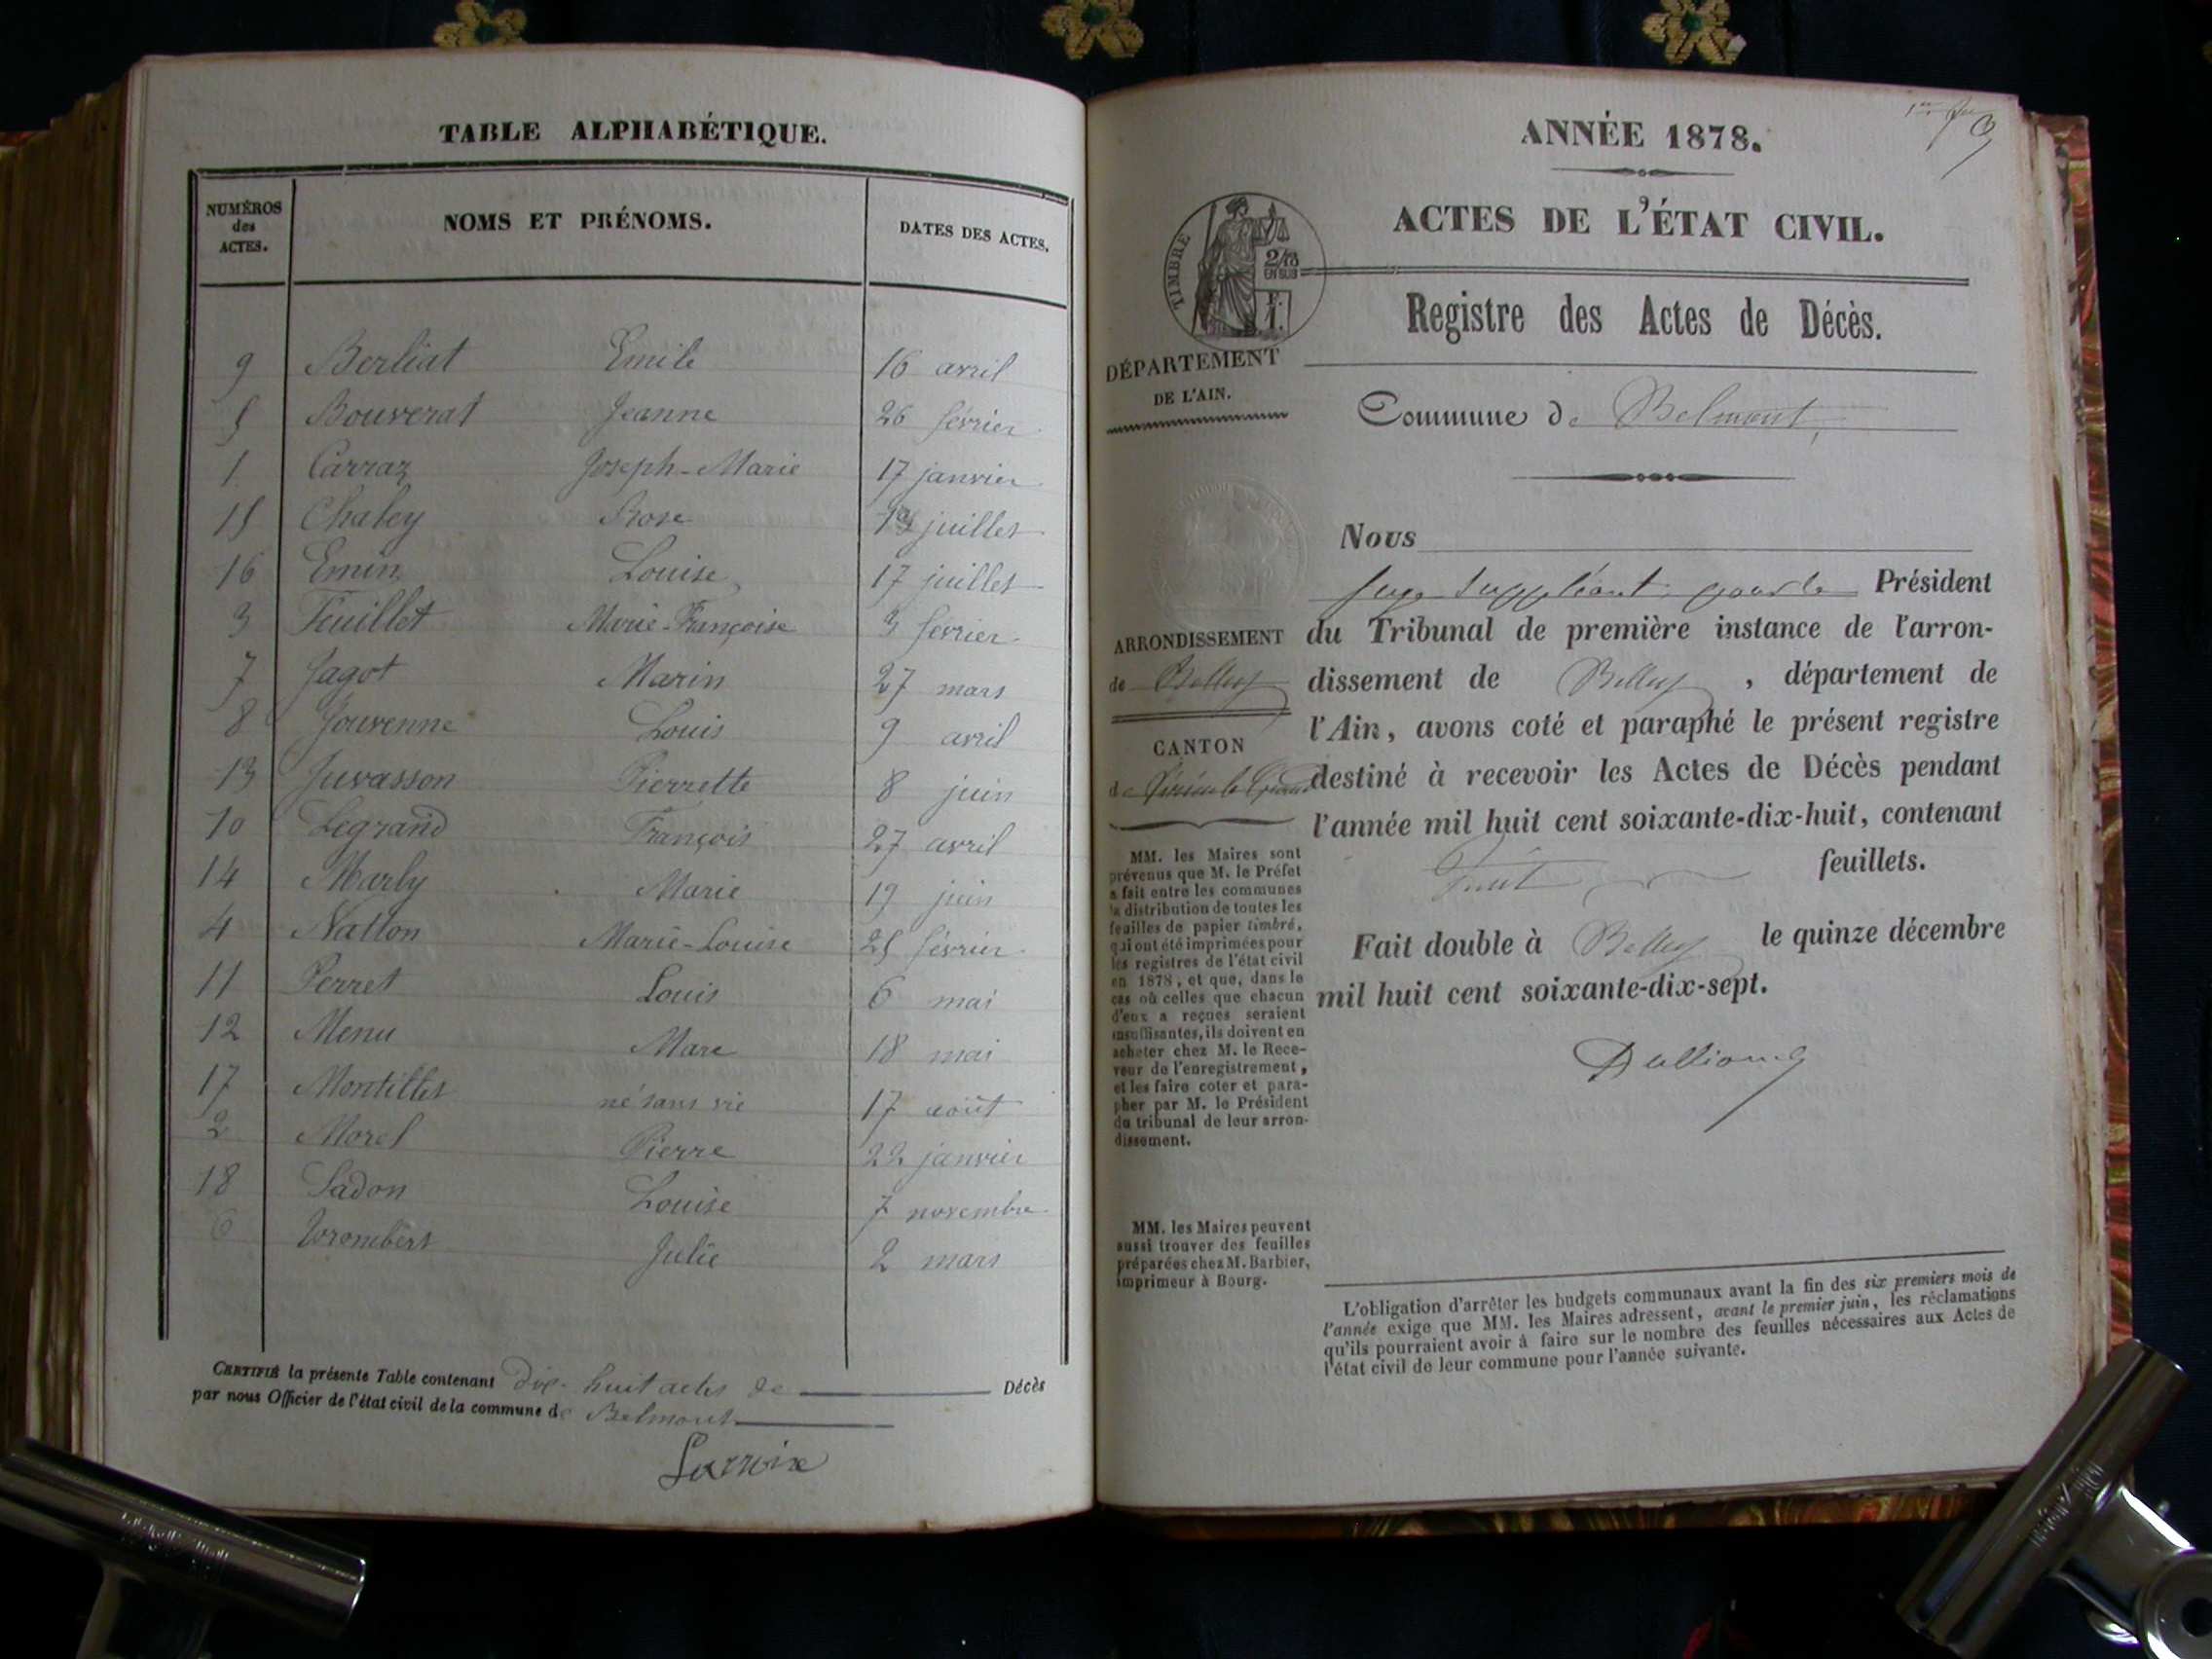 TABLE ALPHABÉTIQUE.
NUMÉROS des ACTES.
NOMS ET PRÉNOMS.
DATES DES ACTES.
9 Berliat Emile 16 avril
5 Bouverat Jeanne 26 février
1 Carraz Joseph-Marie 17 janvier
15 Chaley Rose juillet
16 Emin Louise 17 juillet
3 Feuillet Marie-Françoise 3 février
7 Jagot Marin 27 mars
8 Jouvenne Louis 9 avril
13 Juvasson Pierrette 8 juin
10 Legrand François 27 avril
14 Marly Marie 19 juin
4 Natton Marie-Louise 25 février
11 Perret Louis 6 mai
12 Menu Marc 18 mai
17 Montillet né sans vie 17 août
2 Morel Pierre 22 janvier
18 Sadon Louise 7 novembre
6 Julie 2 mars
CERTIFIÉ la présente Table contenant dix-huit actes de Décès
par nous Officier de l'état civil de la commune de Belmont
ANNÉE 1878.
ACTES DE L'ÉTAT CIVIL.
TIMBRE
2/10
EN SUS
1 F.
Registre des Actes de Décès.
DÉPARTEMENT
DE L'AIN.
Commune de Belmont
Nous
Juge Suppléant pour le Président
du Tribunal de première instance de l'arron-
dissement de Belley, département de
l'Ain, avons coté et paraphé le présent registre
destiné à recevoir les Actes de Décès pendant
l'année mil huit cent soixante-dix-huit, contenant
huit feuillets.
Fait double à Belley le quinze décembre
mil huit cent soixante-dix-sept.
ARRONDISSEMENT
de Belley
CANTON
de Virieu le Grand
MM. les Maires sont
prévenus que M. le Préfet
a fait entre les communes
la distribution de toutes les
feuilles de papier timbré,
qui ont été imprimées pour
les registres de l'état civil
en 1878, et que, dans le
cas où celles que chacun
d'eux a reçues seraient
insuffisantes, ils doivent en
acheter chez M. le Rece-
veur de l'enregistrement,
et les faire coter et para-
pher par M. le Président
du tribunal de leur arron-
dissement.
MM. les Maires peuvent
aussi trouver des feuilles
préparées chez M. Barbier,
imprimeur à Bourg.
L'obligation d'arrêter les budgets communaux avant la fin des six premiers mois de
l'année exige que MM. les Maires adressent, avant le premier juin, les réclamations
qu'ils pourraient avoir à faire sur le nombre des feuilles nécessaires aux Actes de
l'état civil de leur commune pour l'année suivante.